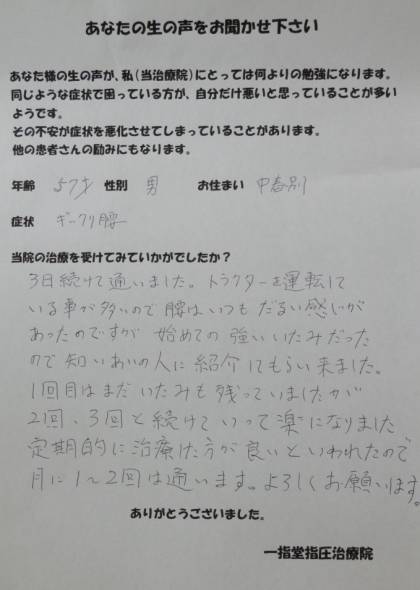 あなたの生の声をお聞かせ下さい
あなた様の生の声が、私(当治療院)にとっては何よりの勉強になります。
同じような症状で困っている方が、自分だけ悪いと思っていることが多い
ようです。
その不安が症状を悪化させてしまっていることがあります。
他の患者さんの励みにもなります。
年齢 57才 性別 男 お住まい 中春別
症状 ギックリ腰
当院の治療を受けてみていかがでしたか?
3日続けて通いました。トラクターを運転して
いる事が多いので腰はいつもだるい感じが
あったのですが始めての強いいたみだった
ので知いあいの人に紹介してもらい来ました。
1回目はまだいたみも残っていましたが
2回、3回と続けていって楽になりました
定期的に治療した方が良いといわれたので
月に1~2回は通います。よろしくお願いします。
ありがとうございました。
一指堂指圧治療院